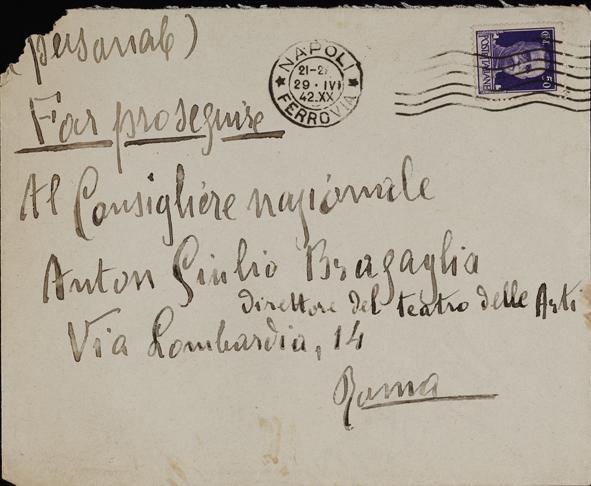 personale)
Far proseguire
Al Consigliere nazionale
Anton Giulio Bragaglia
direttore del teatro delle Arti
Via Lombardia, 14
Roma
NAPOLI
21-2
29 · IV
42.XX
FERROVIA
POSTE ITALIANE
50